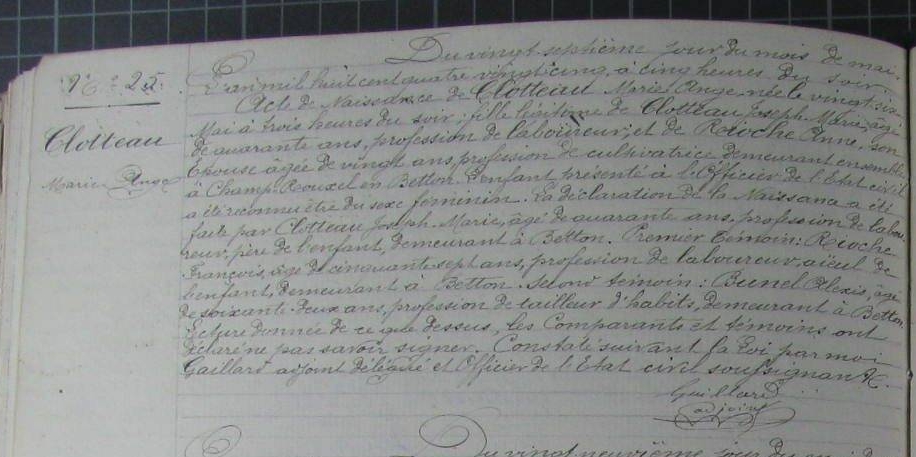 Du vingt septième jour du mois de mai,
N° 25. L'an mil huit cent quatre vingt cinq, à cinq heures du soir.
Acte de Naissance de Clotteau Marie Ange, née le vingt six
Clotteau
Mai à trois heures du soir; fille légitime de Clotteau Joseph Marie, âgé
de quarante ans, profession de laboureur, et de Rioche Anne, son
Marie Ange
épouse âgée de vingt ans, profession de cultivatrice demeurant ensemble
à Champ Rouxel en Betton. L'enfant présenté à l'Officier de l'Etat civil
a été reconnu être du sexe féminin. La déclaration de la Naissance a été
faite par Clotteau Joseph Marie, âgé de quarante ans, profession de labou-
reur, père de l'enfant, demeurant à Betton. Premier témoin: Rioche
François, âgé de cinquante sept ans, profession de laboureur, aïeul de
l'enfant, demeurant à Betton. Second témoin: Brunel Alexis, âgé
de soixante deux ans, profession de tailleur d'habits, demeurant à Betton.
Lecture donnée de ce que dessus, les Comparants et témoins ont
déclaré ne pas savoir signer. Constaté suivant la Loi par moi
Gaillard adjoint délégué et Officier de l'Etat civil soussignant.
Gaillard
adjoint
Du vingt neuvième jour du